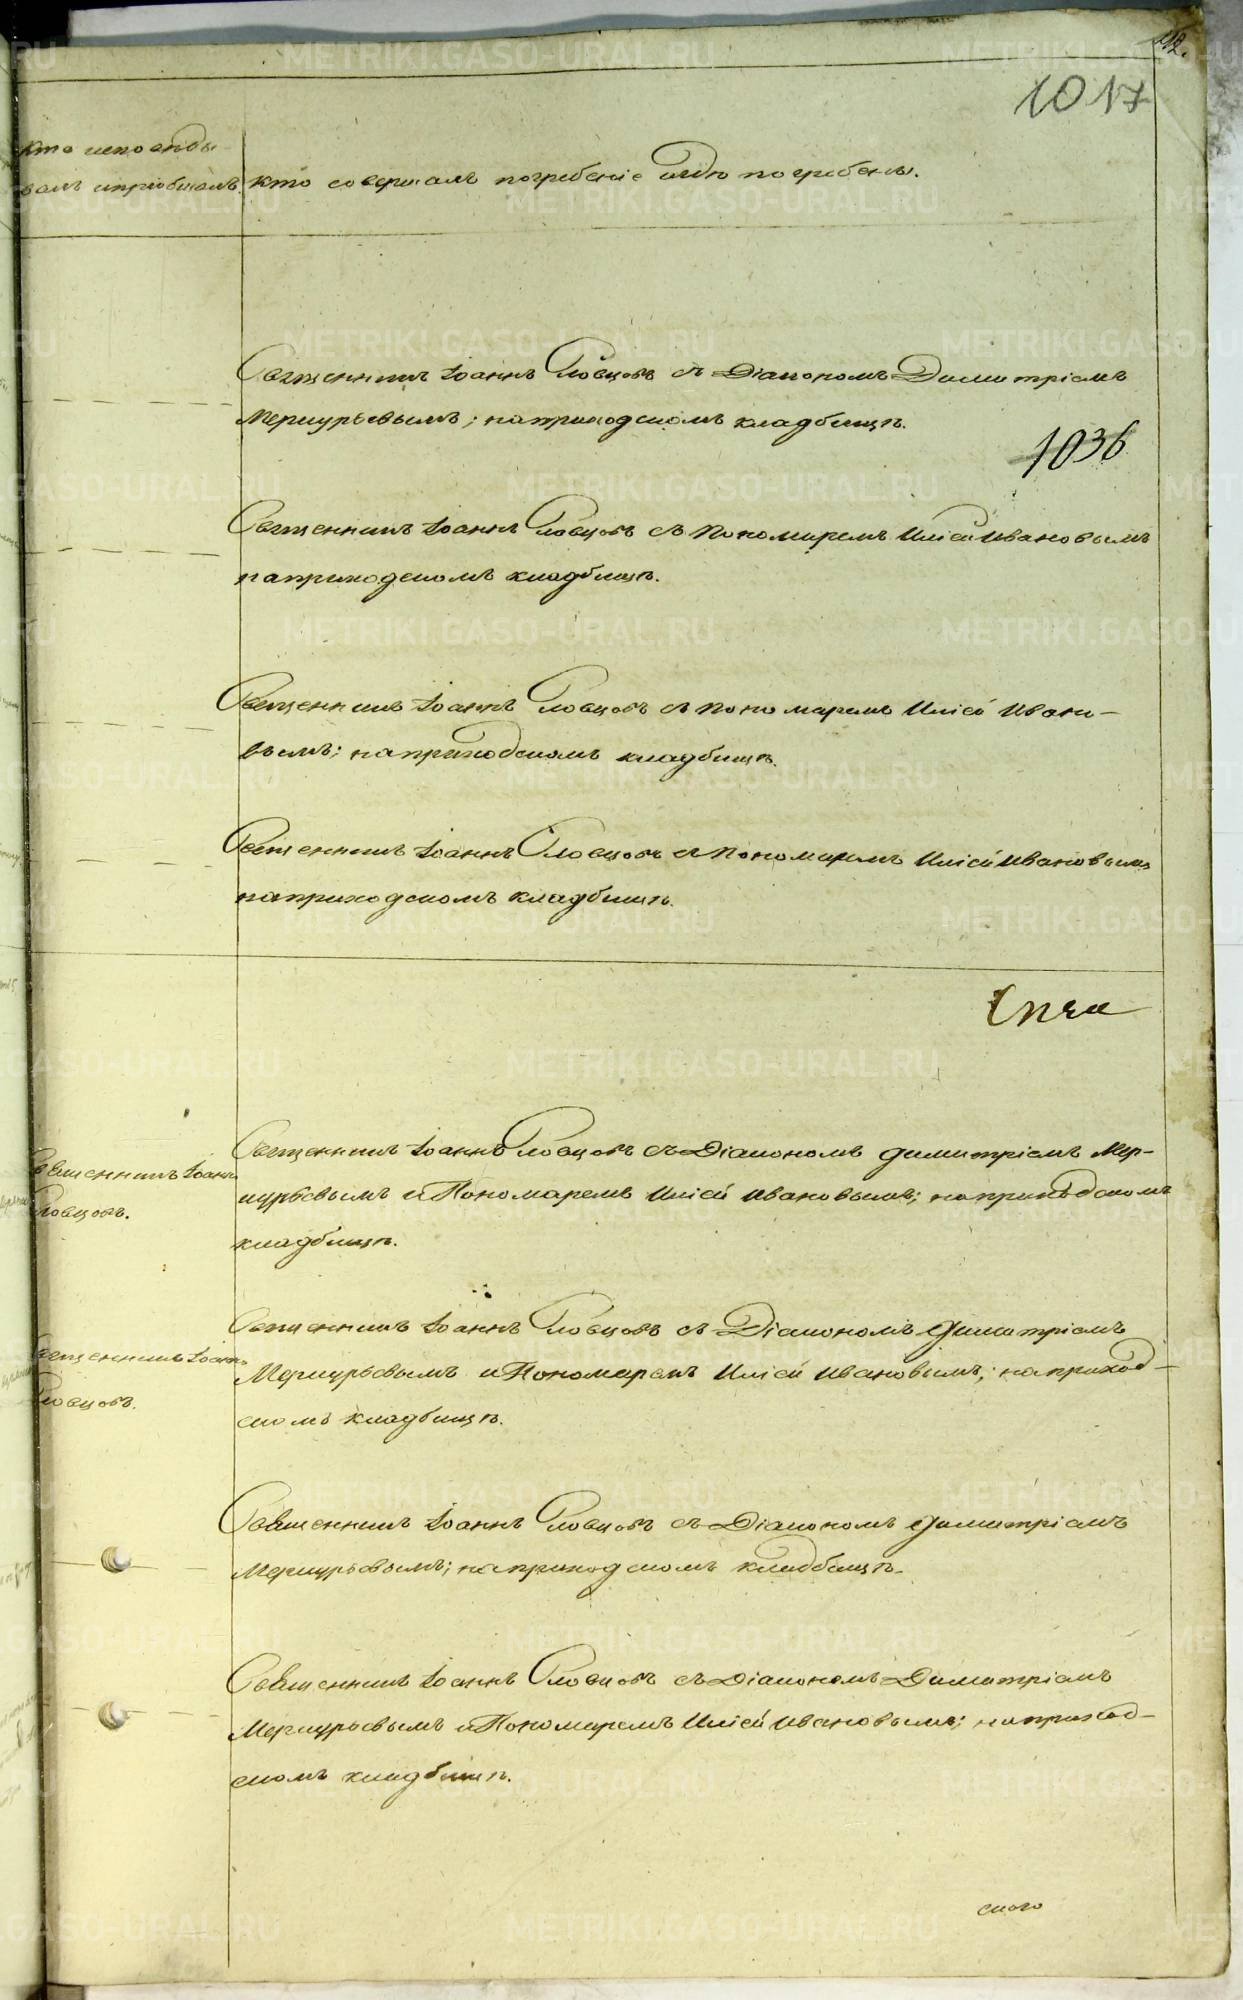 1017
Кто исповѣды-
валъ и пріобщалъ.
кто совершалъ погребеніе и гдѣ погребены.
Священникъ Іоаннъ Словцовъ съ Діакономъ Димитріемъ
Меркурьевымъ; на приходскомъ кладбищѣ.
1036
Священникъ Іоаннъ Словцовъ съ Пономаремъ Иліей Ивановымъ
на приходскомъ кладбищѣ.
Священникъ Іоаннъ Словцовъ съ пономаремъ Иліей Ивано-
вымъ; на приходскомъ кладбищѣ.
Священникъ Іоаннъ Словцовъ съ Пономаремъ Иліей Ивановымъ
на приходскомъ кладбищѣ.
Священникъ Іоаннъ
Словцовъ.
Священникъ Іоаннъ Словцовъ съ Діакономъ Димитріемъ Мер-
курьевымъ и Пономаремъ Иліей Ивановымъ; на приходскомъ
кладбищѣ.
Священникъ Іоаннъ
Словцовъ.
Священникъ Іоаннъ Словцовъ съ Діакономъ Димитріемъ
Меркурьевымъ и Пономаремъ Иліей Ивановымъ; на приход-
скомъ кладбищѣ.
Священникъ Іоаннъ Словцовъ съ Діакономъ Димитріемъ
Меркурьевымъ; на приходскомъ кладбищѣ.
Священникъ Іоаннъ Словцовъ съ Діакономъ Димитріемъ
Меркурьевымъ и Пономаремъ Иліей Ивановымъ; на приход-
скомъ кладбищѣ.
скаго
METRIKI.GASO-URAL.RU